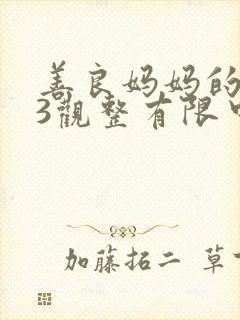 善良妈妈的
3觀整有限
加藤拓二 草